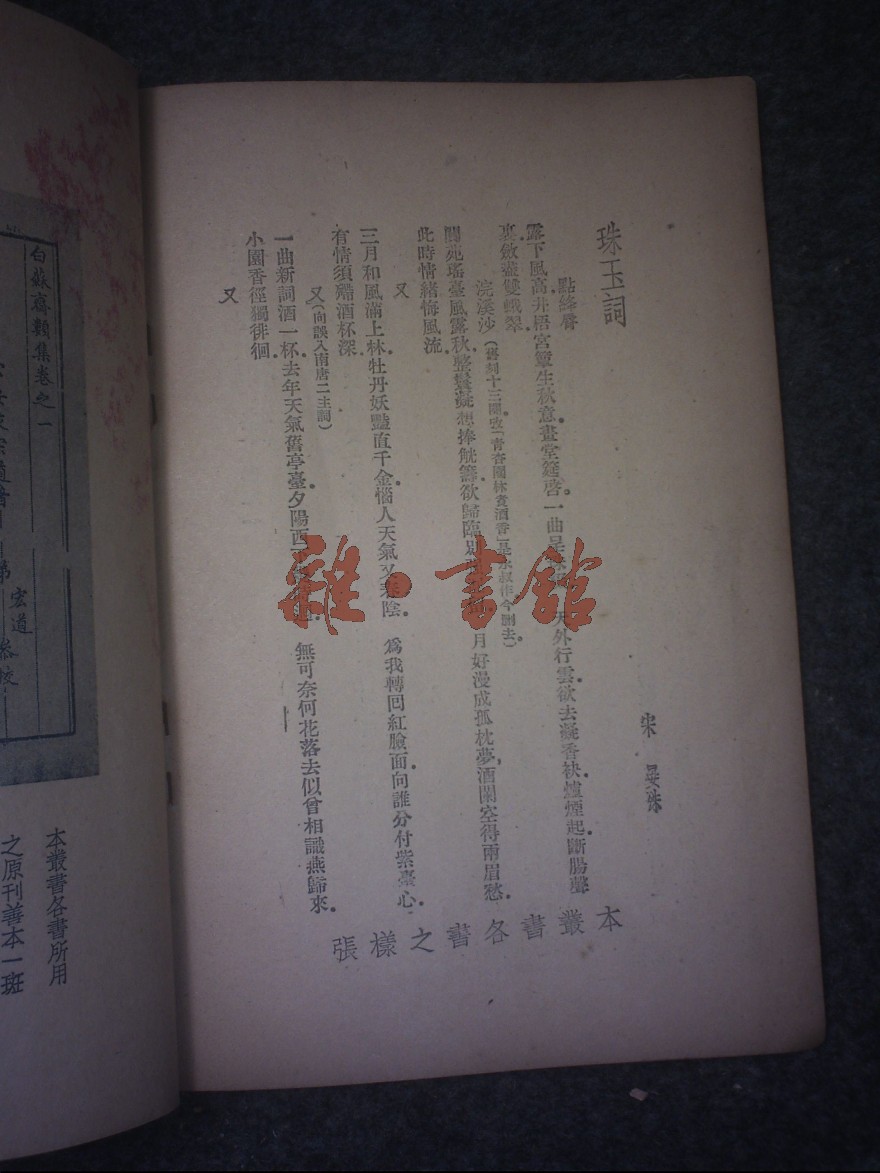 珠玉詞
宋 晏殊
點絳脣
露下風高井梧宮簟生秋意畫堂筵啓。一曲呈
天外行雲欲去凝香袂爐煙起斷腸聲
裏斂盡雙蛾翠
浣溪沙(舊刻十三闋攷「青杏園林煮酒香」是永叔作今刪去)
閬苑瑤臺風露秋整鬟凝想捧觥籌欲歸臨別
月好漫成孤枕夢酒闌空得兩眉愁
此時情緒悔風流
又
三月和風滿上林牡丹妖豔直千金惱人天氣又春陰 爲我轉回紅臉面向誰分付紫臺心
有情須殢酒杯深
又(向誤入南唐二主詞)
一曲新詞酒一杯去年天氣舊亭臺夕陽西
無可奈何花落去似曾相識燕歸來
小園香徑獨徘徊
又
本叢書各書之樣張
雜·書館
白蘇齋類集卷之一
宏道
參校
本叢書各書所用
之原刊善本一斑